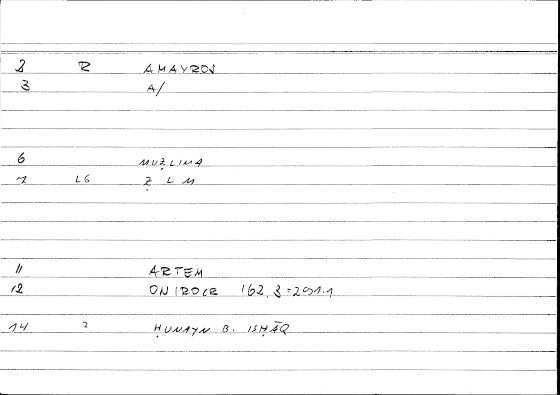 2 R AMAYROS
3 A/
6 MUẒLIMA
7 LG Ẓ L M
11 ARTEM
12 ONIROCR 162,3=291.1
14 2 ḤUNAYN B. ISḤĀQ